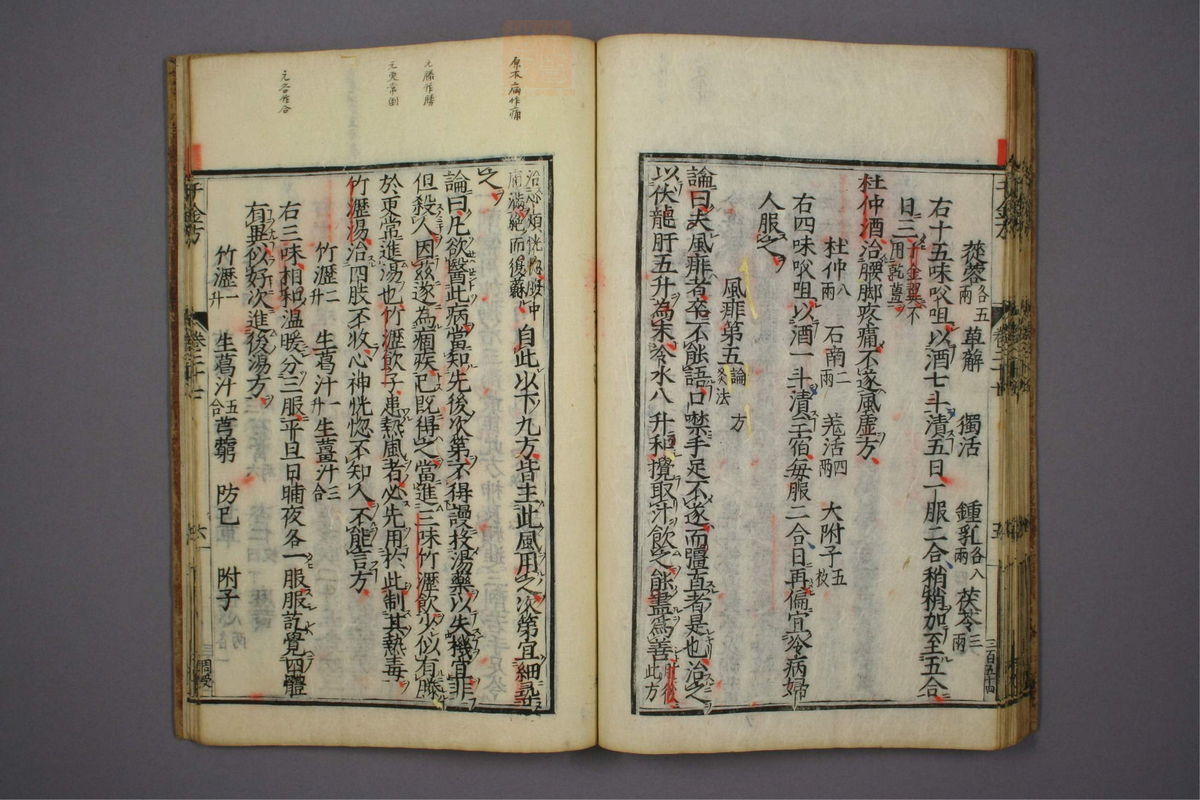 蓯蓉 各五兩 萆解 獨活 鍾乳 各八兩 茯苓 三兩
右十五味㕮咀以酒七斗漬五日一服二合稍稍加至五合
日二 千金翼不用乾薑
杜仲酒治腰脚疼痛不遂風虚方
杜仲 八兩 石南 二兩 羗活 四兩 大附子 五枚
右四味㕮咀以酒一斗漬三宿毎服二合日再偏宜冷病婦
人服之
風痱第五 論 灸法 方
論曰夫風痱者卒不能語口噤手足不遂而彊直者是也治之
以伏龍肝五升為末冷水八升和攪取汁飲之能盡為善 肝後此方
治心煩恍惚腹中痛滿絶而復蘇 自此以下九方皆主此風用之次第宜細尋
之
論曰凡欲醫此病當知先後次第不得謾投湯藥以失機宜非
但殺人因兹遂為痼疾已既得之當進三味竹瀝飲少似有勝
於更常進湯也竹瀝飲子患熱風者必先用於此制其熱毒
竹瀝湯治四肢不收心神恍惚不知人不能言方
竹瀝 二升 生葛汁 一升 生薑汁 三合
右三味相和温暖分三服平旦日晡夜各一服服訖覺四體
有異似好次進後湯方
竹瀝 一升 生葛汁 五合 芎藭 防已 附子
原本痛作痛
元勝作勝
元更常倒
元各作合
千金方
卷二十七
六
周受
三百五十四